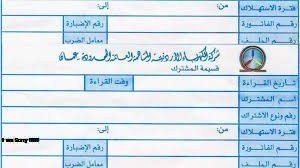 فترة الاستهلاك من: إلى:
رقم الفاتورة رقم الإضبارة
رقم الملف معامل الضرب
شركة الكهرباء الأردنية المساهمة العامة المحدودة - عمان
قسيمة المشترك
تاريخ القراءة وقت القراءة
اسم المشترك
رقم ونوع الاشتراك
فترة الاستهلاك من: إلى:
رقم الفاتورة رقم الإضبارة
معامل الضرب